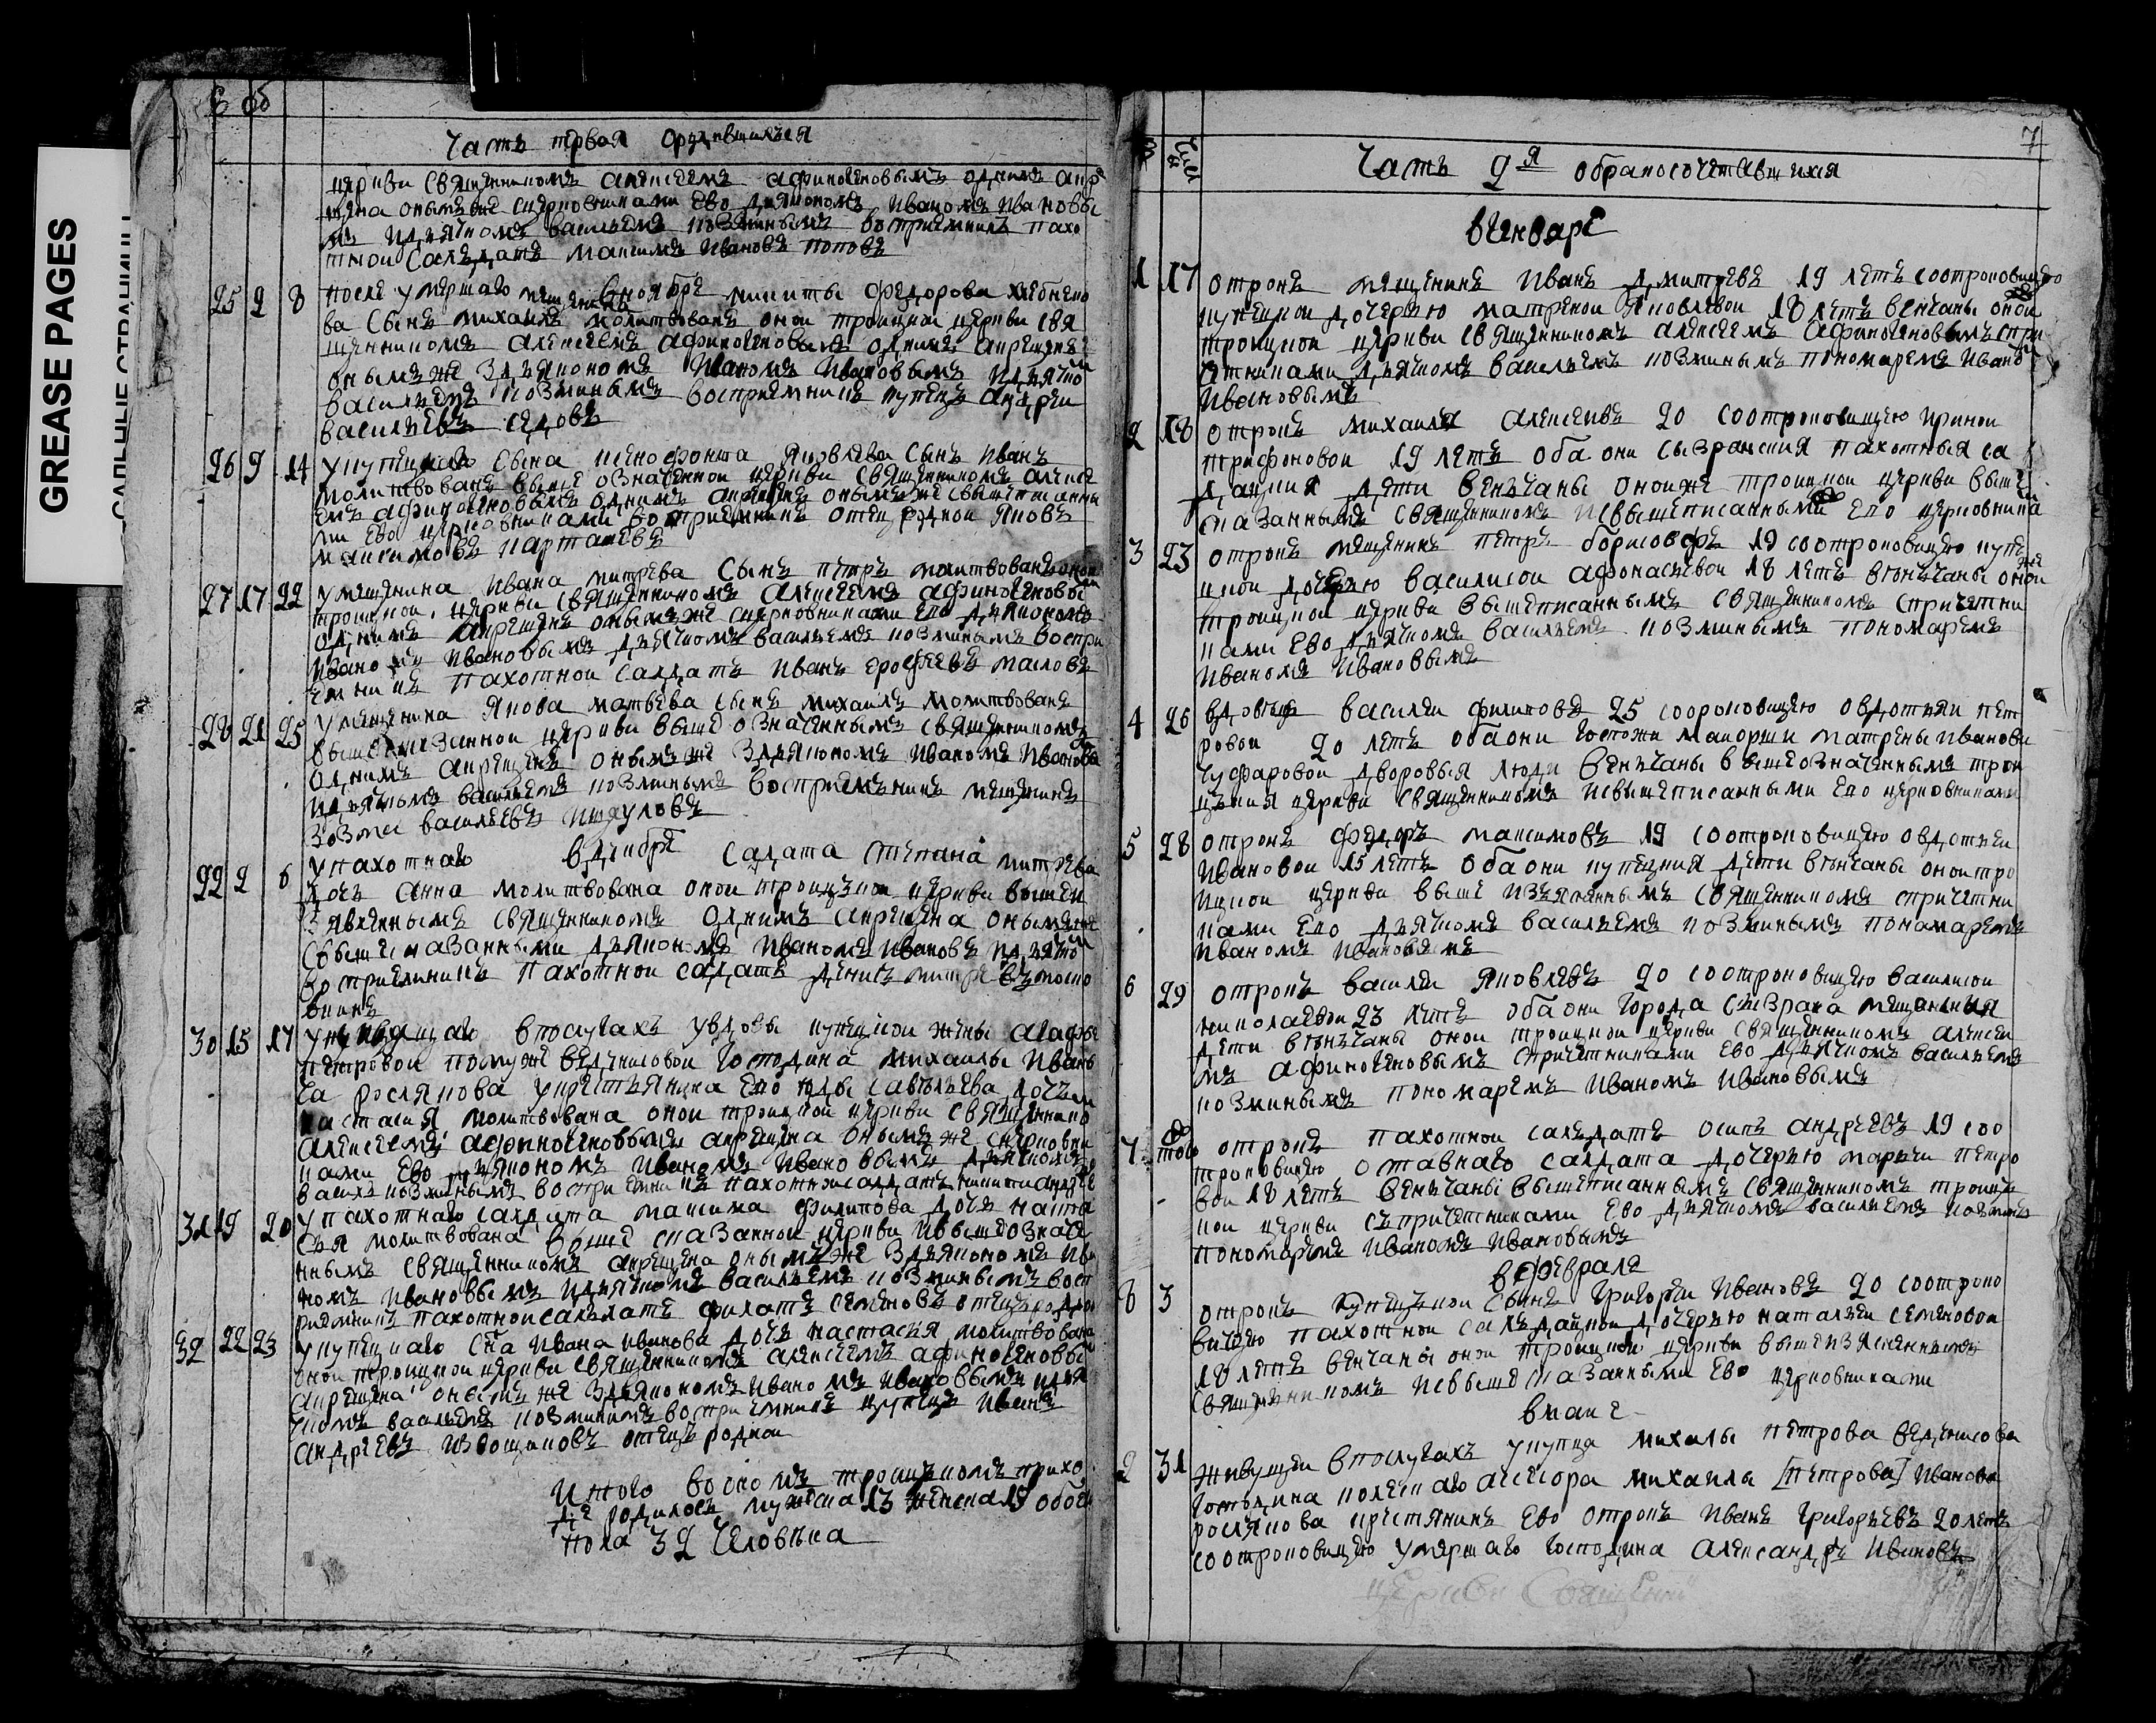 GREASE PAGES
6 об
Часть первая о родившихся
церкви священникомъ алексеемъ афиногеновымъ однимъ
онымъ же сцерковниками ево дьякономъ иваномъ ивановы
мъ идьячкомъ васильемъ козминымъ восприемникъ пахо
тной салъдатъ максимъ ивановъ поповъ
вноябре
25 2 8 после умершаго мещенина никиты федорова хлебнико
ва сынъ михаилъ молитвованъ оной троицкой церкви свя
щенникомъ алексеемъ афиногеновымъ однимъ
онымъ же здьякономъ иваномъ ивановымъ идьячко
васильемъ козминымъ восприемникъ купецъ андреи
васильевъ седовъ
26 9 14 укупецкаго сына ксенофонта яковлева сынъ иванъ
молитвованъ выше означенной церкви священникомъ алексе
емъ афиногеновымъ однимъ окрещенъ онымъ же свышеписанны
ми ево церковниками восприемникъ отец родной яковъ
максимовъ
27 17 22 умещенина ивана митрева сынъ петръ молитвованъ оной
троицкой церкви священникомъ алексеемъ афиногеновы
однимъ окрещенъ онымъ же сцерковниками ево дьякономъ
иваномъ ивановымъ дьячкомъ васильемъ козминымъ воспри
емникъ пахотной салдатъ иванъ ерофеевъ масловъ
28 21 25 умещенина якова матвева сынъ михаилъ молитвованъ
вышесказанной церкви выше означеннымъ священникомъ
однимъ окрещенъ онымъ же здьякономъ иваномъ иванов
идьячкомъ васильемъ козминымъ восприемникъ мещенинъ
козма васильевъ
вдекабре
29 2 6 упахотнаго салдата степана митрева
дочь анна молитвована оной троицкой церкви вышеи
зявленнымъ священникомъ однимъ окрещена онымъ же
свышесказанными дьякономъ иваномъ ивановъ идьячко
восприемникъ пахотной салдатъ денисъ митревъ
30 15 17 уживущаго впослугахъ увдовы купецкой жены агафьи
петровой помуже веденисовой господина михаилы иванов
ча рослякова укрестьянина ево савельева дочь
настасия молитвована оной троицкой церкви священнико
алексеемъ афиногеновымъ окрещена онымъ же сцерковни
ками ево дьякономъ иваномъ ивановымъ дьячкомъ
васильемъ козминымъ восприемникъ пахотной салдатъ
31 19 20 упахотнаго салдата максима филипова дочь наста
сья молитвована выше сказанной церкви ивышеозначе
ннымъ священникомъ окрещена онымъ же здьякономъ ива
номъ ивановымъ идьячкомъ васильемъ козминымъ восп
риемникъ пахотной салъдатъ филатъ семеновъ отецъ родной
32 22 23 укупецкаго сна ивана иванова дочь настасия молитвована
оной троицкой церкви священникомъ алексеемъ афиногеновы
окрещена онымъ же здьякономъ иваномъ ивановымъ идья
чкомъ васильемъ козминымъ восприемникъ купецъ иванъ
андреевъ извощиковъ отецъ родной
Итого воономъ троицкомъ прихо
де родилось мужеска 13 женска 19 обоег
пола 32 человека
7
Часть 2я обракосочетавшихся
вгенваре
1 17 отрокъ мещенинъ иванъ дмитревъ 19 летъ соотроковицею
купецкой дочерью матреной яковлевой 18 летъ венчаны оной
троицкой церкви священникомъ алексеемъ афиногеновымъ спри
четниками дьячкомъ васильемъ козминымъ пономаремъ иваном
ивановымъ
2 18 отрокъ михаила алексеевъ 20 соотроковицею ириной
трифоновой 19 летъ оба они сызранския пахотныя са
лдацкия дети венъчаны оной же троицкой церкви выше
сказаннымъ священникомъ исвышеписанными ево церковника
3 23 отрокъ мещенинъ петръ борисовъ 19 соотроковицею купе
цкой дочерью василисой афонасьевой 18 летъ венчаны оной
троицкой церкви вышеписаннымъ священникомъ спричетни
ками ево дьячкомъ васильемъ козминымъ пономаремъ
иваномъ ивановымъ
4 26 вдовецъ василеи филиповъ 25 соороковицею овдотьеи пет
ровой 20 летъ обаони госпожи маиорши матрены ивановы
чуфаровой дворовыя люди венъчаны вышеозначеннымъ трои
цкия церкви священникомъ исвышеписанными ево церковниками
5 28 отрокъ федоръ максимовъ 19 соотроковицею овдотьеи
ивановой 15 летъ обаони купецкия дети венчаны оной тро
ицкой церкви выше изъясненнымъ священникомъ спричетни
ками ево дьячкомъ васильемъ козминымъ пономаремъ
иваномъ ивановымъ
6 29 отрокъ василеи яковлевъ 20 соотроковицею василисой
николаевой 23 летъ обаони города сызрана мещанския
дети венчаны оной троицкой церкви священникомъ алексее
мъ афиногеновымъ спричетниками ево дьячкомъ васильемъ
козминымъ пономаремъ иваномъ ивановымъ
7 того отрокъ пахотной салъдатъ осипъ андреевъ 19 соо
троковицею отставнаго салдата дочерью марьеи петро
вой 18 летъ венъчаны вышеписаннымъ священникомъ троиц
кой церкви съпричетниками ево дьячкомъ васильемъ козмины
пономаремъ иваномъ ивановымъ
вфеврале
8 3 отрокъ купецъкой сынъ григореи ивановъ 20 соотроко
вицею пахотной салъдацкой дочерью натальеи семеновой
18 летъ венчаны оной троицкой церкви вышеизясненнымъ
священникомъ исвышесказанными ево церковниками
вмаие
2 31 живущеи впослугахъ укупца михаилы петрова веденисова
господина колескаго асесора михаила [петрова] иванова
рослякова крестянинъ ево отрокъ иванъ григорьевъ 20 летъ
соотроковицею умершаго господина александръ ивановъ
церкви священи